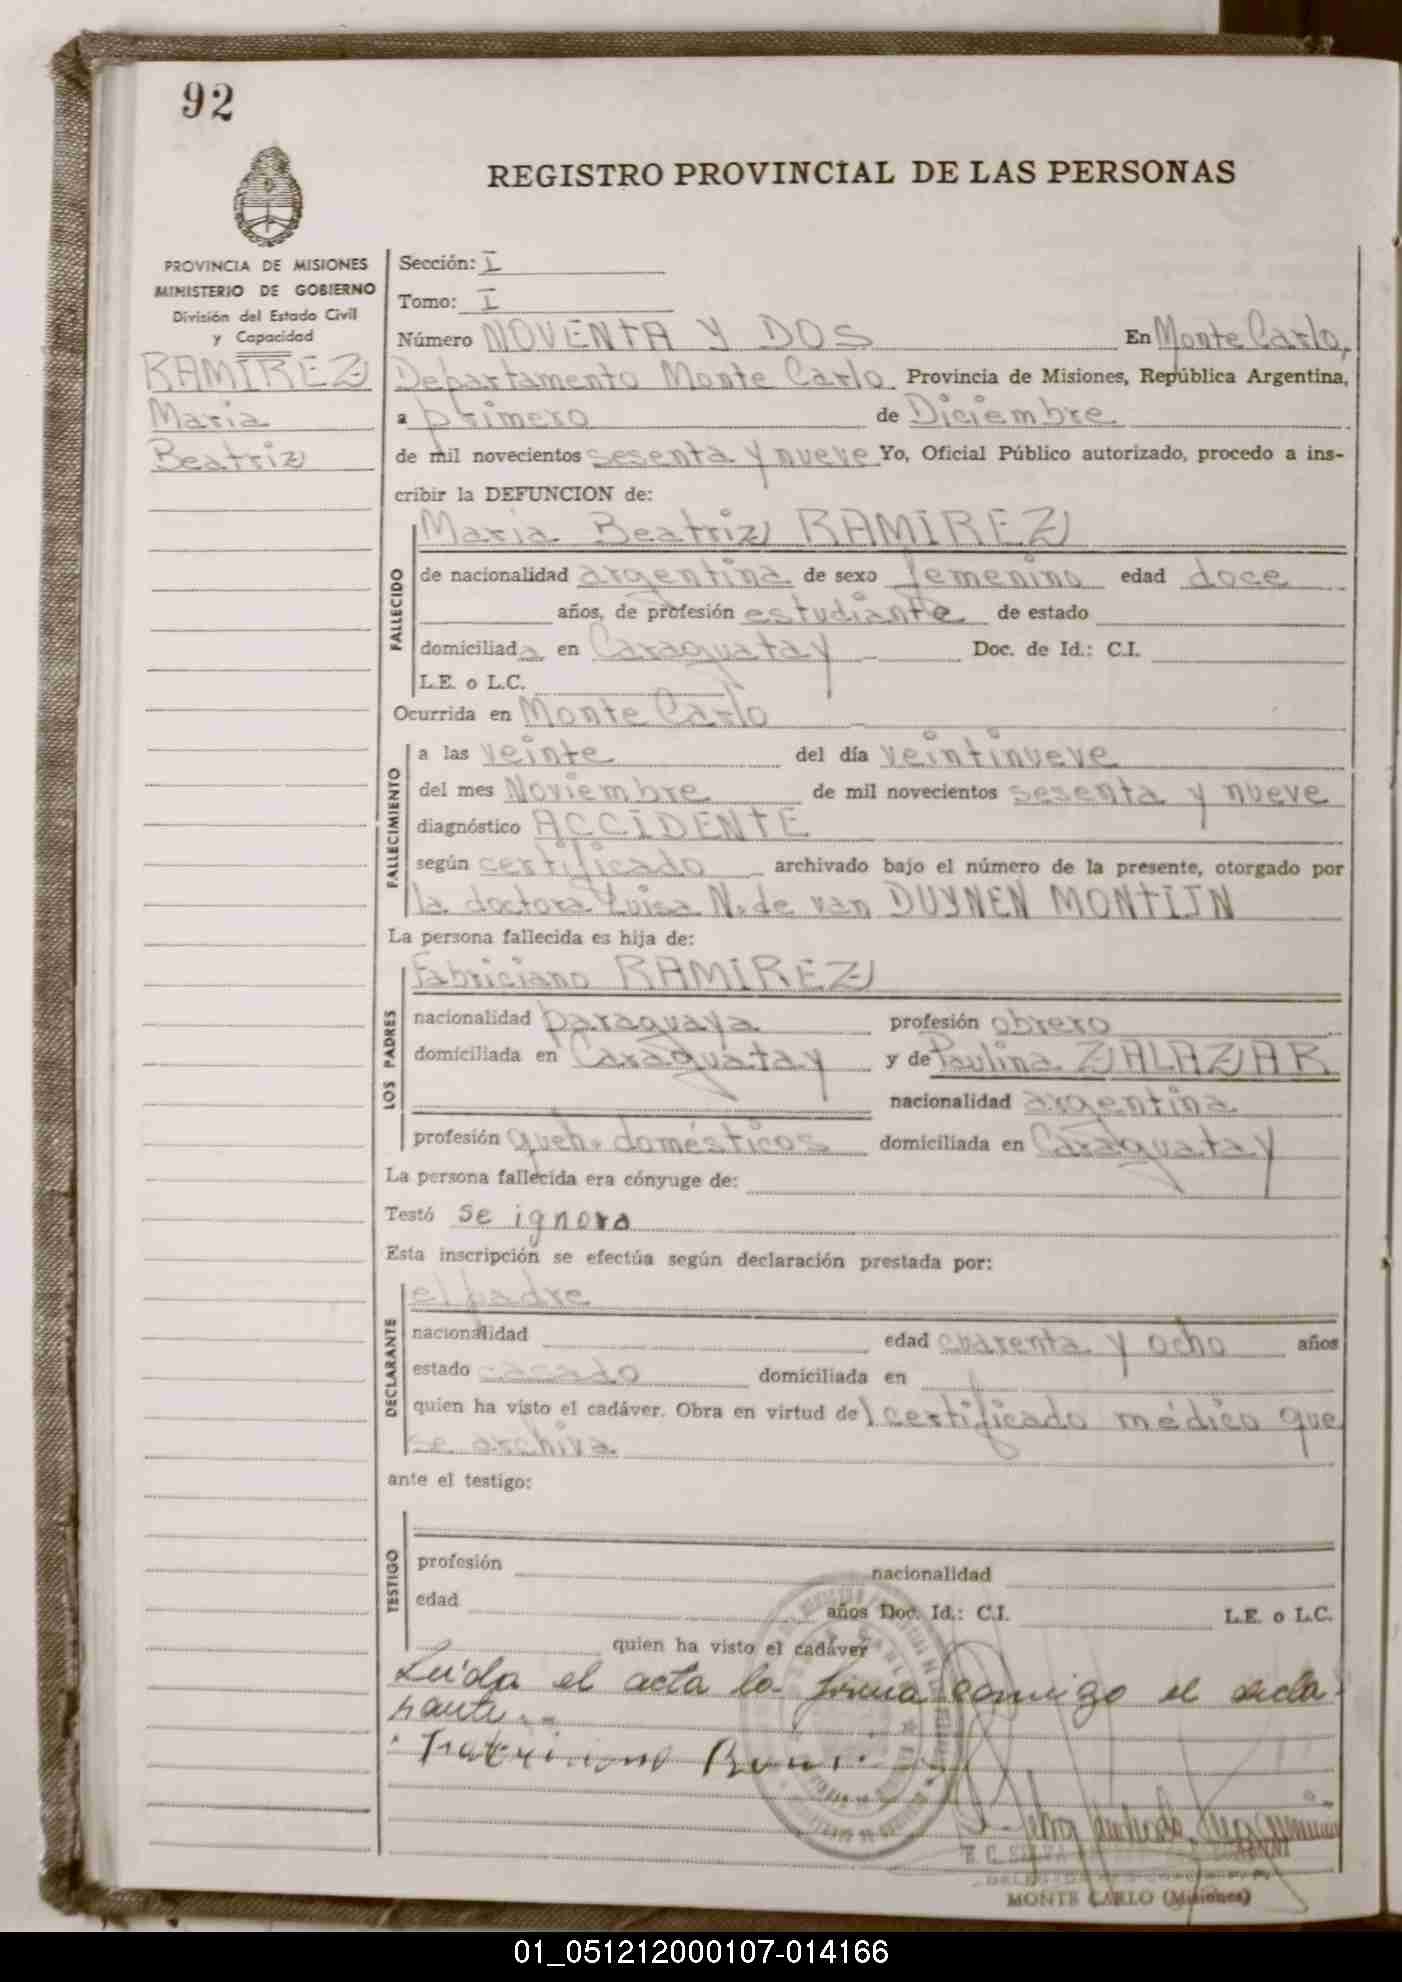 92
REGISTRO PROVINCIAL DE LAS PERSONAS
PROVINCIA DE MISIONES
MINISTERIO DE GOBIERNO
División del Estado Civil
y Capacidad
RAMIREZ
Maria
Beatriz
Sección: I
Tomo: I
Número NOVENTA Y DOS En Monte Carlo,
Departamento Monte Carlo Provincia de Misiones, República Argentina,
a primero de Diciembre
de mil novecientos sesenta y nueve Yo, Oficial Público autorizado, procedo a ins-
cribir la DEFUNCION de:
FALLECIDO
Maria Beatriz RAMIREZ
de nacionalidad argentina de sexo femenino edad doce
años, de profesión estudiante de estado
domiciliada en Caraguatay Doc. de Id.: C.I.
L.E. o L.C.
Ocurrida en Monte Carlo
FALLECIMIENTO
a las veinte del día veintinueve
del mes Noviembre de mil novecientos sesenta y nueve
diagnóstico ACCIDENTE
según certificado archivado bajo el número de la presente, otorgado por
la doctora Luisa N. de van DUYNEN MONTIJN
La persona fallecida es hija de:
LOS PADRES
Fabriciano RAMIREZ
nacionalidad paraguaya profesión obrero
domiciliada en Caraguatay y de Paulina ZALAZAR
nacionalidad argentina
profesión queh. domésticos domiciliada en Caraguatay
La persona fallecida era cónyuge de:
Testó se ignora
Esta inscripción se efectúa según declaración prestada por:
DECLARANTE
el padre
nacionalidad edad cuarenta y ocho años
estado casado domiciliada en
quien ha visto el cadáver. Obra en virtud del certificado médico que
se archiva
ante el testigo:
TESTIGO
profesión nacionalidad
edad años Doc. Id.: C.I. L.E. o L.C.
quien ha visto el cadáver
Leida el acta la firma conmigo el decla-
rante.--
MONTE CARLO (Misiones)
01_051212000107-014166